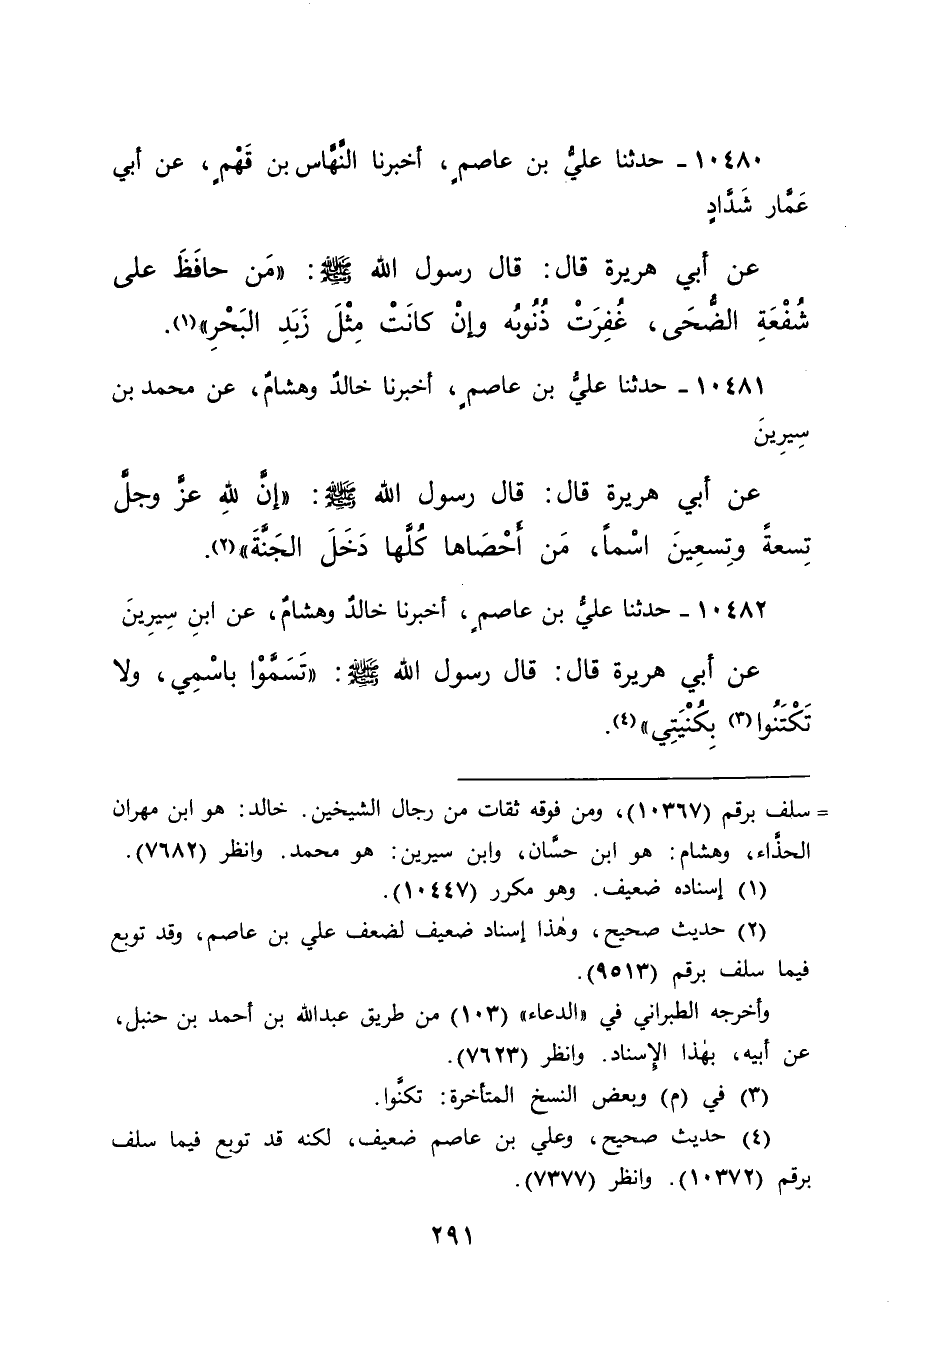 ١٠٤٨٠ - حدثنا عليُّ بن عاصمٍ، أخبرنا النَّهَّاس بن قَهْمٍ، عن أبي
عَمَّار شَدَّادٍ
عن أبي هريرة قال: قال رسول الله ﷺ: «مَن حافَظَ على
شُفْعَةِ الضُّحَى، غُفِرَتْ ذُنُوبُه وإنْ كانَتْ مِثْلَ زَبَدِ البَحْرِ»(١).
١٠٤٨١ - حدثنا عليُّ بن عاصمٍ، أخبرنا خالدٌ وهشامٌ، عن محمد بن
سِيرِينَ
عن أبي هريرة قال: قال رسول الله ﷺ: «إنَّ للهِ عزَّ وجلَّ
تِسعةً وتِسعِينَ اسْماً، مَن أَحْصَاها كُلَّها دَخَلَ الجَنَّةَ»(٢).
١٠٤٨٢ - حدثنا عليُّ بن عاصمٍ، أخبرنا خالدٌ وهشامٌ، عن ابنِ سِيرِينَ
عن أبي هريرة قال: قال رسول الله ﷺ: «تَسَمَّوْا باسْمِي، ولا
تَكْتَنُوا(٣) بِكُنْيَتِي»(٤).
= سلف برقم (١٠٣٦٧)، ومن فوقه ثقات من رجال الشيخين. خالد: هو ابن مهران
الحذَّاء، وهشام: هو ابن حسَّان، وابن سيرين: هو محمد. وانظر (٧٦٨٢).
(١) إسناده ضعيف. وهو مكرر (١٠٤٤٧).
(٢) حديث صحيح، وهٰذا إسناد ضعيف لضعف علي بن عاصم، وقد توبع
فيما سلف برقم (٩٥١٣).
وأخرجه الطبراني في «الدعاء» (١٠٣) من طريق عبدالله بن أحمد بن حنبل،
عن أبيه، بهٰذا الإسناد. وانظر (٧٦٢٣).
(٣) في (م) وبعض النسخ المتأخرة: تكنَّوا.
(٤) حديث صحيح، وعلي بن عاصم ضعيف، لكنه قد توبع فيما سلف
برقم (١٠٣٧٢). وانظر (٧٣٧٧).
٢٩١